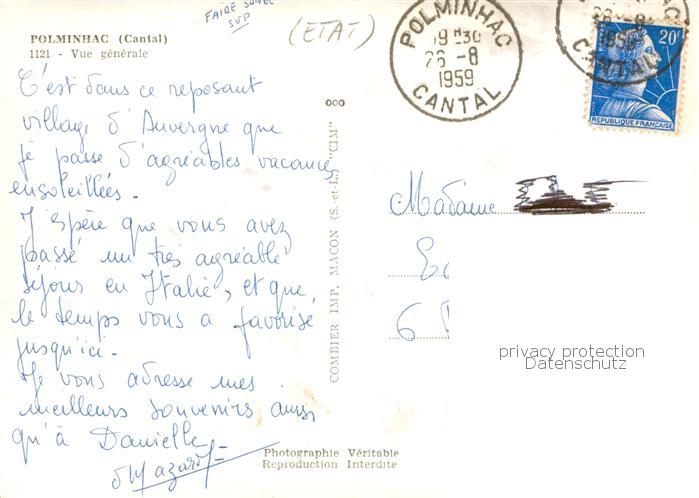 FAIRE SUIVRE
SVP
(ETAT)
POLMINHAC (Cantal)
1121 - Vue générale
C'est dans ce reposant
village d'Auvergne que
je passe d'agréables vacances
ensoleillées.
J'espère que vous avez
passé un très agréable
séjour en Italie, et que
le temps vous a favorisé
jusqu'ici.
Je vous adresse mes
meilleurs souvenirs ainsi
qu'à Danielle
COMBIER IMP. MACON (S.-et-L.) "CIM"
Photographie Véritable
Reproduction Interdite
POLMINHAC
19H30
26 -8
1959
CANTAL
20F
REPUBLIQUE FRANÇAISE
CANTAL
Madame
privacy protection
Datenschutz